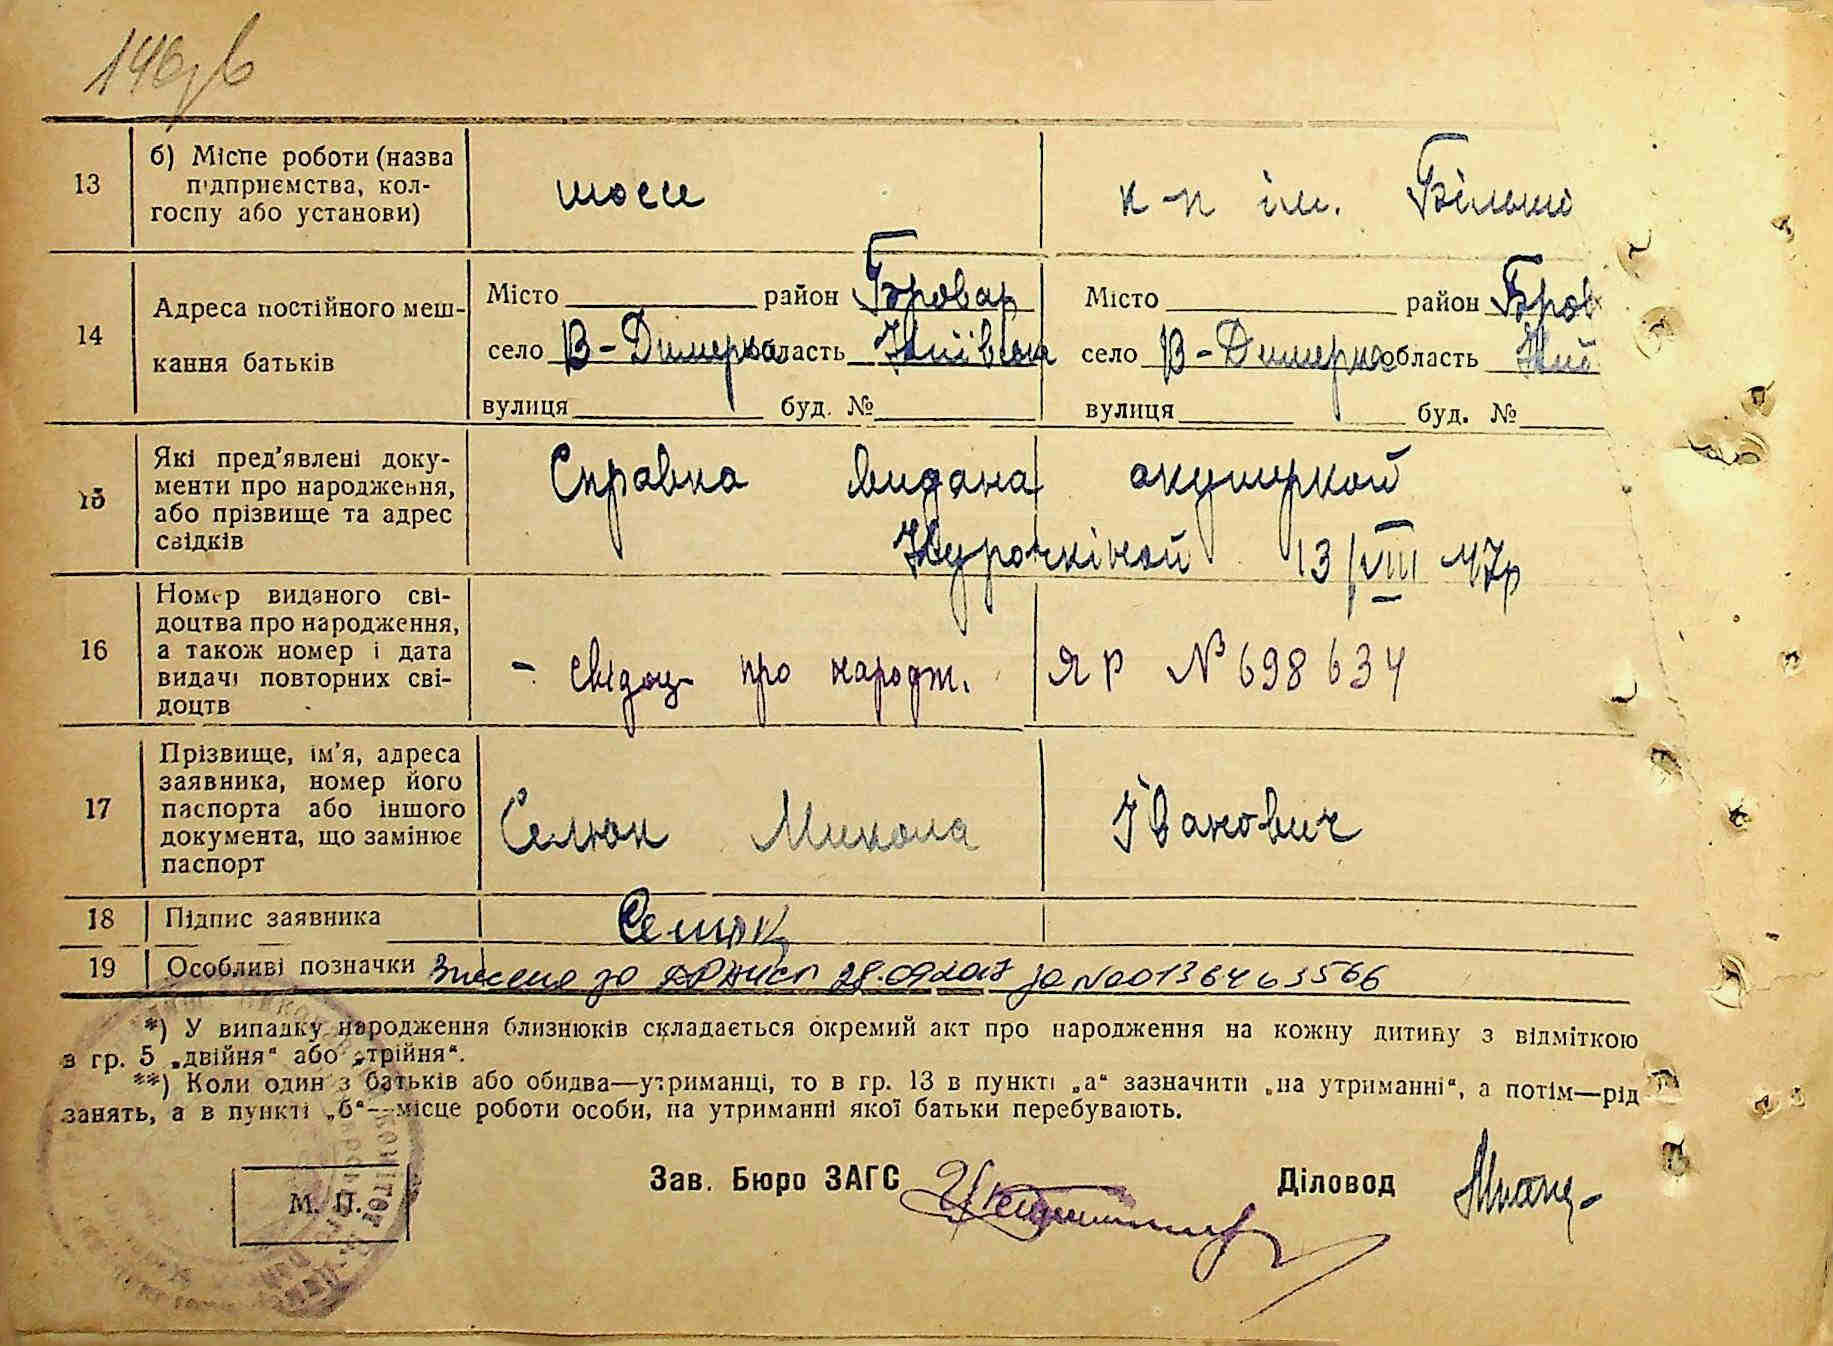 146зв
13
б) Місце роботи (назва
підприємства, кол-
госпу або установи)
шосе
к-п ім. Більшо
14
Адреса постійного меш-
кання батьків
Місто район Бровар
село В-Димерка область Київська
вулиця буд. №
Місто район Бров
село В-Димерка область Київ
вулиця буд. №
15
Які пред'явлені доку-
менти про народження,
або прізвище та адрес
свідків
Справка видана акушеркой
Курочкіной 13/VIII 47р
16
Номер виданого сві-
доцтва про народження,
а також номер і дата
видачі повторних сві-
доцтв
- свідоц про народж. ЯР № 698634
17
Прізвище, ім'я, адреса
заявника, номер його
паспорта або іншого
документа, що замінює
паспорт
Селюк Микола Іванович
18
Підпис заявника
Селюк
19
Особливі позначки
Внесено до ДРАЦСГ 28.09.2017 за №00136463566
*) У випадку народження близнюків складається окремий акт про народження на кожну дитину з відміткою
в гр. 5 „двійня“ або „трійня“.
**) Коли один з батьків або обидва—утриманці, то в гр. 13 в пункті „а“ зазначити „на утриманні“, а потім—рід
занять, а в пункті „б“—місце роботи особи, на утриманні якої батьки перебувають.
Зав. Бюро ЗАГС
Діловод
М. П.